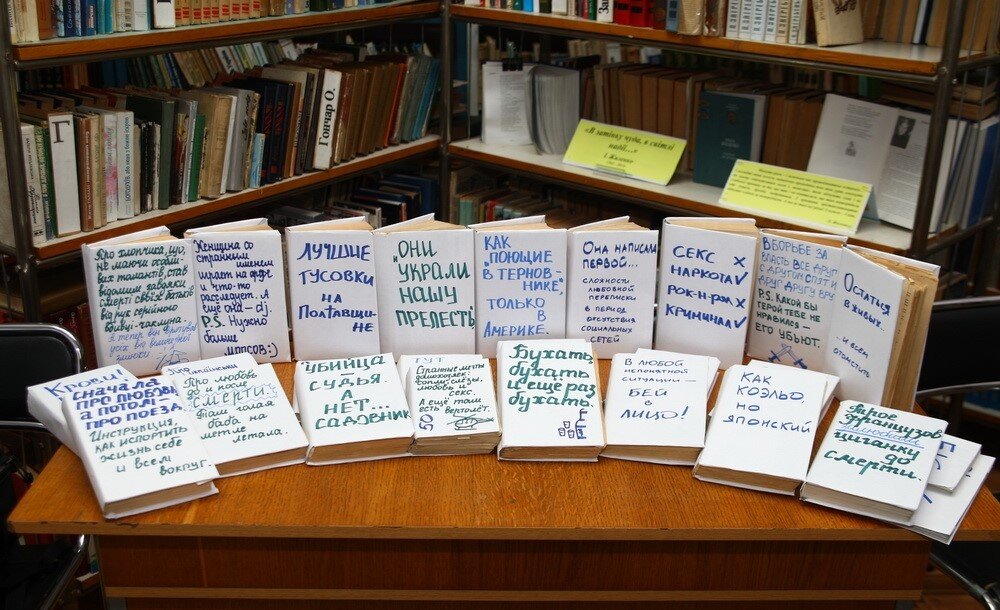 Г
Гончар О.
„В затінку чуда, в світлі
надії..."
І. Жиленко
Про хлопчика, що,
не маючи ніяких
талантів, став
відомим завдяки
смерті своїх батьків
від рук серійного
вбивці-чаклуна.
Женщина со
странным именем
играет на арфе
и что-то
расследует. А
ещё она - dj.
P.S. Нужно
больше
марсов:)
ЛУЧШИЕ
ТУСОВКИ
НА
ПОЛТАВЩИ-
НЕ
„ОНИ
УКРАЛИ
НАШУ
ПРЕЛЕСТЬ"
КАК
„ПОЮЩИЕ
В ТЕРНОВ-
НИКЕ",
ТОЛЬКО
В
АМЕРИКЕ.
Она написала
первой...
СЛОЖНОСТИ
ЛЮБОВНОЙ
ПЕРЕПИСКИ
В ПЕРИОД
ОТСУТСТВИЯ
СОЦИАЛЬНЫХ
СЕТЕЙ
СЕКС X
НАРКОТА V
РОК-Н-РОЛ X
КРИМИНАЛ V
В БОРЬБЕ ЗА
ВЛАСТЬ ВСЕ ДРУГ
С ДРУГОМ СПЯТ И
ДРУГ ДРУГУ ВРУТ
P.S. КАКОЙ БЫ
ГЕРОЙ ТЕБЕ НЕ
НРАВИЛСЯ -
ЕГО УБЬЮТ.
Остаться
в живых.
И всем
отомстить
Крови!
СНАЧАЛА
ПРО ЛЮБОВЬ,
А ПОТОМ
ПРО ПОЕЗД.
Инструкция,
как испортить
жизнь себе
и всем
вокруг.
По-украински
Про любовь
и после
смерти.
Там голая
баба на
метле летала.
УБИЙЦА
СУДЬЯ
А
НЕТ...
САДОВНИК
ТУТ
любовь и
секс.
А ещё там
есть вертолёт.
50
Бухать,
бухать
и ещё раз
бухать.
В ЛЮБОЙ
НЕПОНЯТНОЙ
СИТУАЦИИ -
БЕЙ
В
ЛИЦО!
КАК
КОЭЛЬО,
НО
ЯПОНСКИЙ
Трое французов
цыганку до
смерти.